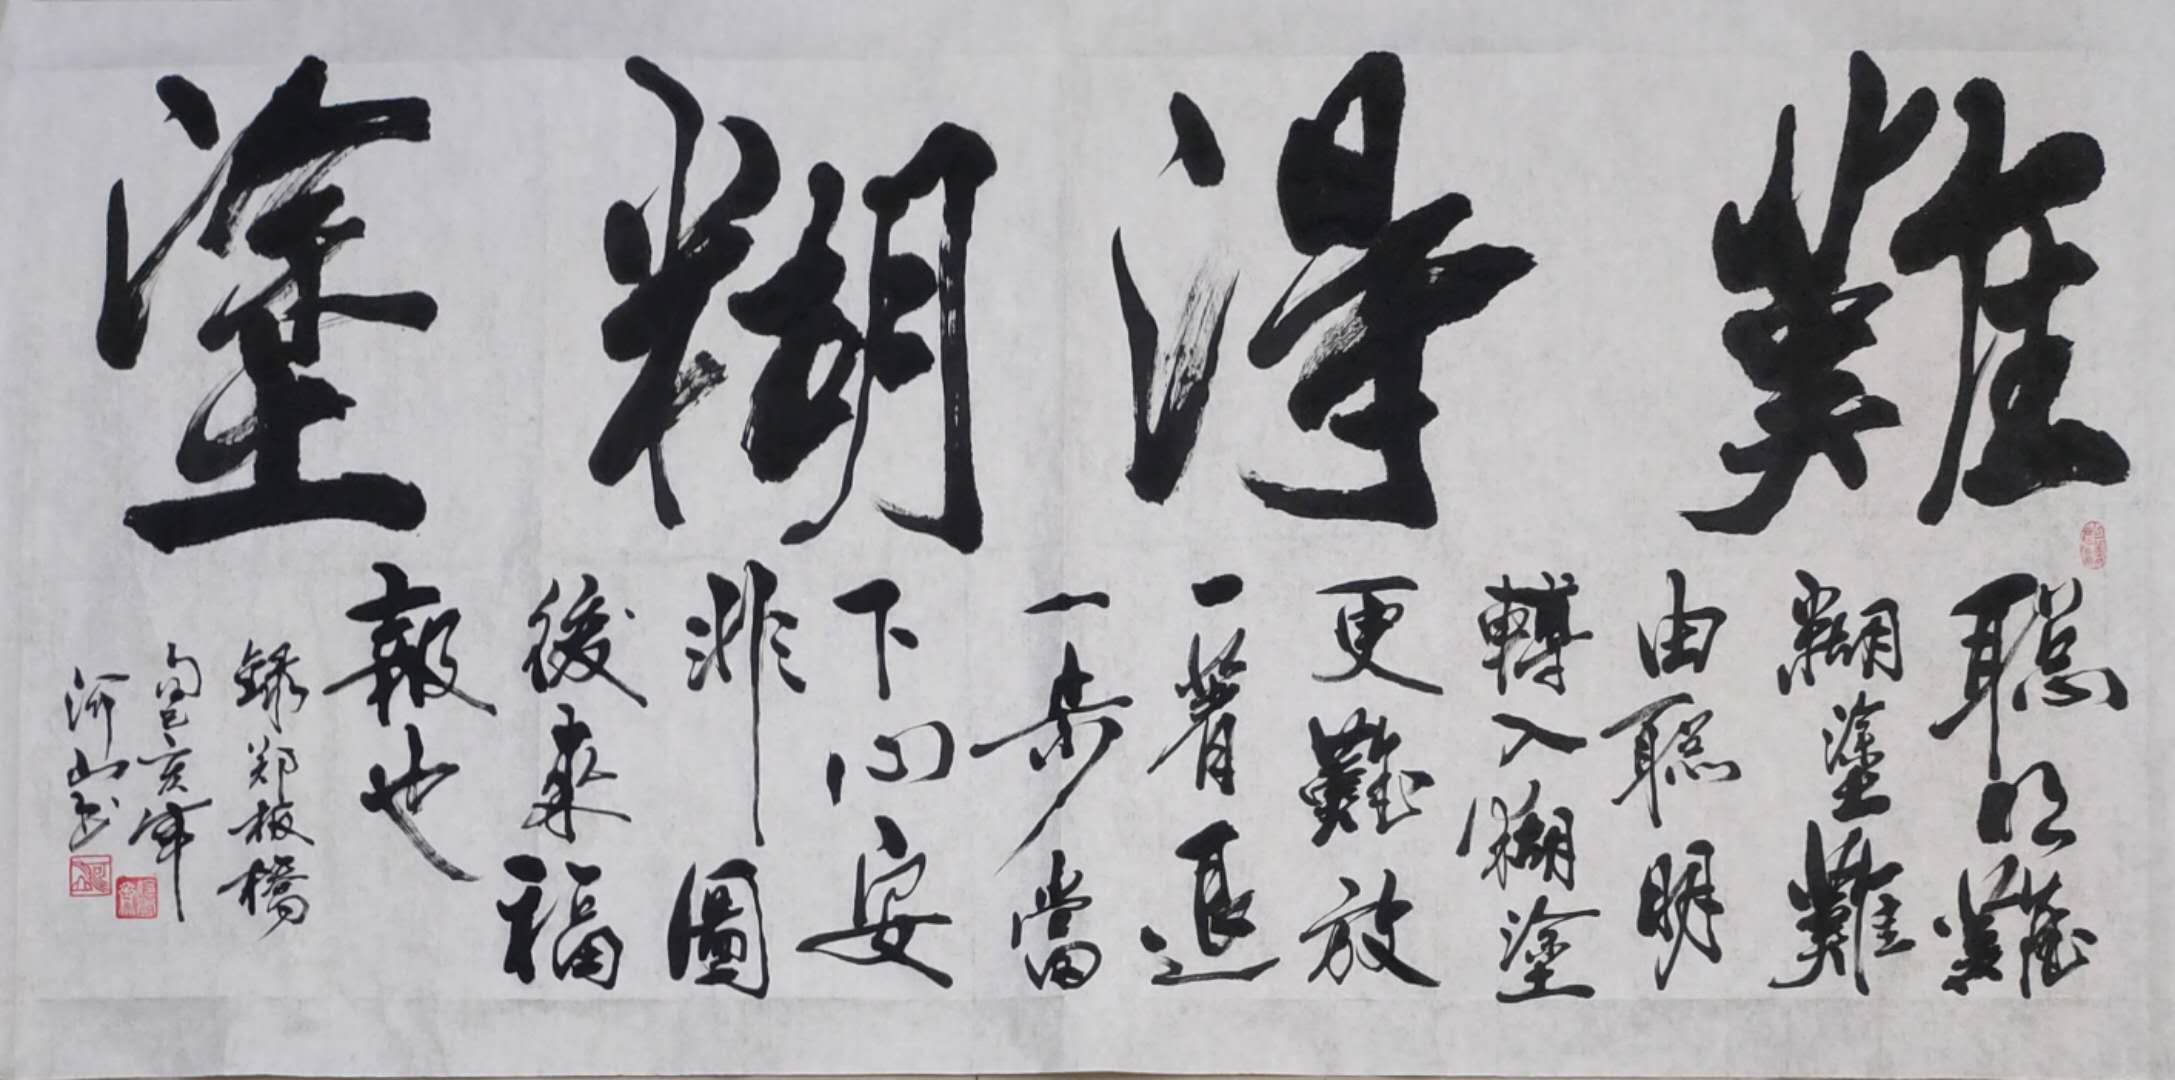 難得糊塗
聰明難
糊塗難
由聰明
轉入糊塗
更難放
一著退
一步當
下心安
非圖
後來福
報也
錄郑板橋
句己亥年
河山书